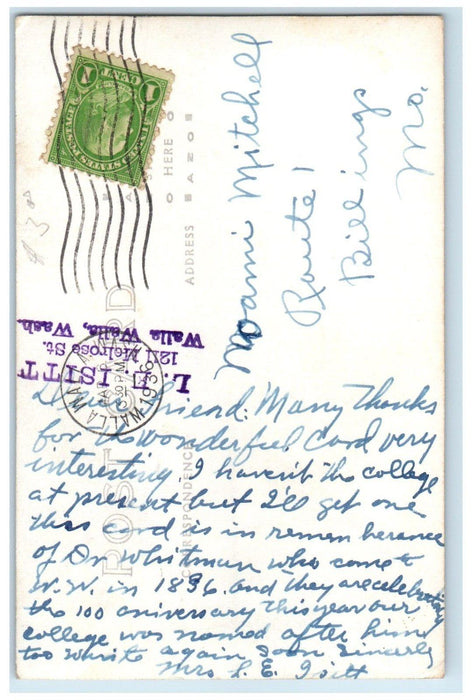 1 CENT 1
$3.00
PLACE STAMP HERE
ADDRESS
POST CARD
CORRESPONDENCE
WALLA WALLA
1936
L. E. ISITT
1211 Melrose St.
Walla Walla, Wash.
Naomi Mitchell
Route 1
Billings
Mo.
Dear Friend: Many Thanks
for the wonderful card very
interesting I havent the college
at present but I'll get one
this card is in remem berance
of Dr Whitman who come to
W.W. in 1836 and they are celebrating
the 100 aniversary this year our
college was named after him
too write again soon Sincerly
Mrs L. E. Isitt